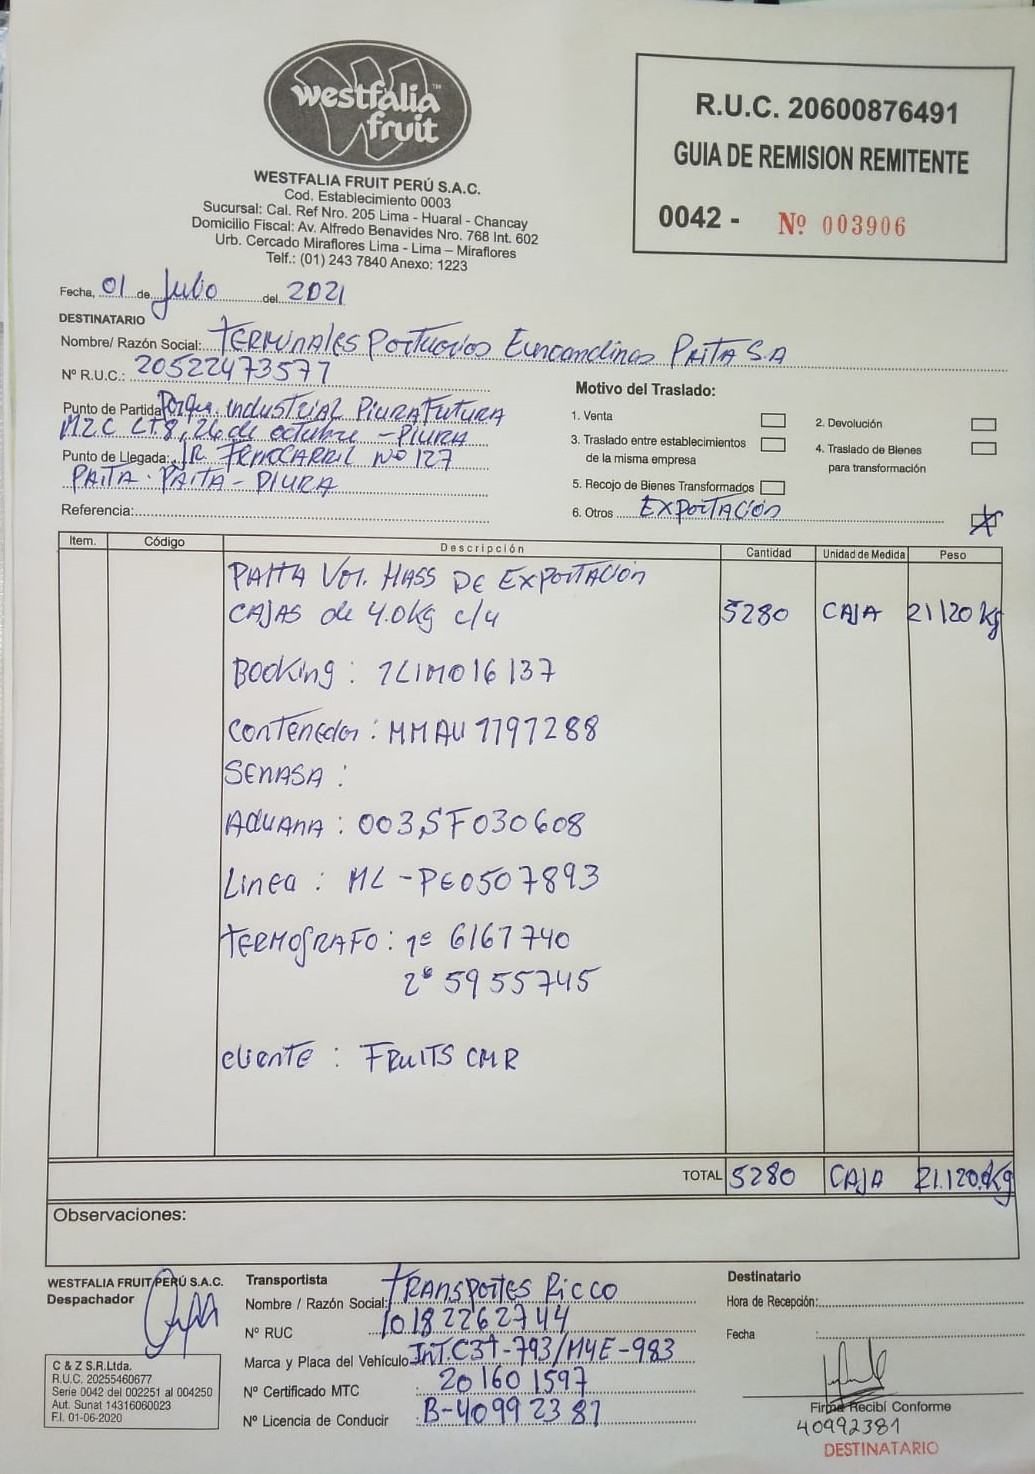 westfalia™
fruit
WESTFALIA FRUIT PERÚ S.A.C.
Cod. Establecimiento 0003
Sucursal: Cal. Ref Nro. 205 Lima - Huaral - Chancay
Domicilio Fiscal: Av. Alfredo Benavides Nro. 768 Int. 602
Urb. Cercado Miraflores Lima - Lima – Miraflores
Telf.: (01) 243 7840 Anexo: 1223
R.U.C. 20600876491
GUIA DE REMISION REMITENTE
0042 - Nº 003906
Fecha, 01 de Julio del 2021
DESTINATARIO
Nombre/ Razón Social: TERMINALES PORTUARIOS Euroandinos PAITA S.A
Nº R.U.C.: 20522473577
Punto de Partida Parque Industrial Piura Futura
MZ C LT8, 26 de octubre - PIURA
Punto de Llegada: JR FERROCARRIL Nº 127
PAITA - PAITA - PIURA
Referencia:
Motivo del Traslado:
1. Venta
2. Devolución
3. Traslado entre establecimientos
de la misma empresa
4. Traslado de Bienes
para transformación
5. Recojo de Bienes Transformados
6. Otros EXPORTACIÓN
Item. Código Descripción Cantidad Unidad de Medida Peso
PALTA Var. HASS DE EXPORTACIÓN
CAJAS de 4.0kg c/u 5280 CAJA 21120 kg
Booking : 1LIM016137
Contenedor : MMAU 1197288
SENASA :
Aduana : 003,SF030608
Linea : ML - PE0507893
TERMOGRAFO : 1º 6167740
2º 5955745
cliente : FRUITS CMR
TOTAL 5280 CAJA 21.120.kg
Observaciones:
WESTFALIA FRUIT PERÚ S.A.C.
Despachador
C & Z S.R.Ltda.
R.U.C. 20255460677
Serie 0042 del 002251 al 004250
Aut. Sunat 14316060023
F.I. 01-06-2020
Transportista
Nombre / Razón Social: TRANSPORTES RICCO
Nº RUC 10182262744
Marca y Placa del Vehículo INT.C3T-793/M4E-983
Nº Certificado MTC : 201601597
Nº Licencia de Conducir : B-40992381
Destinatario
Hora de Recepción:
Fecha :
Firma Recibí Conforme
40992381
DESTINATARIO